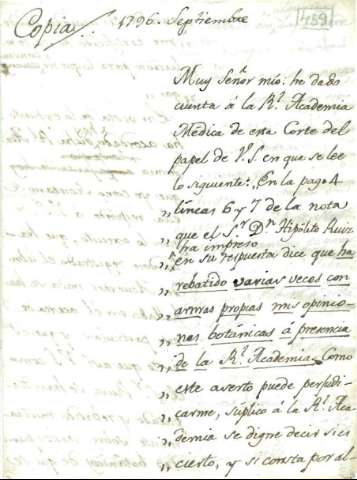 Copia
1796. Septiembre
159
Muy Señor mio: he dado
cuenta à la Rl. Academia
Medica de esta Corte del
papel de V.S. en que se lee
lo siguiente: En la pag. 4
„ lineas 6 y 7 de la nota
„ que el Sr. Dn. Hipólito Ruiz
ha impreso
„ en su respuesta dice que ha
„ rebatido varias veces con
„ armas propias mis opinio-
„ nes botánicas à presencia
„ de la Rl. Academia. Como
„ este aserto puede perjudi-
„ carme, súplico à la Rl. Aca-
„ demia se digne decir si es
„ cierto, y si consta por al-